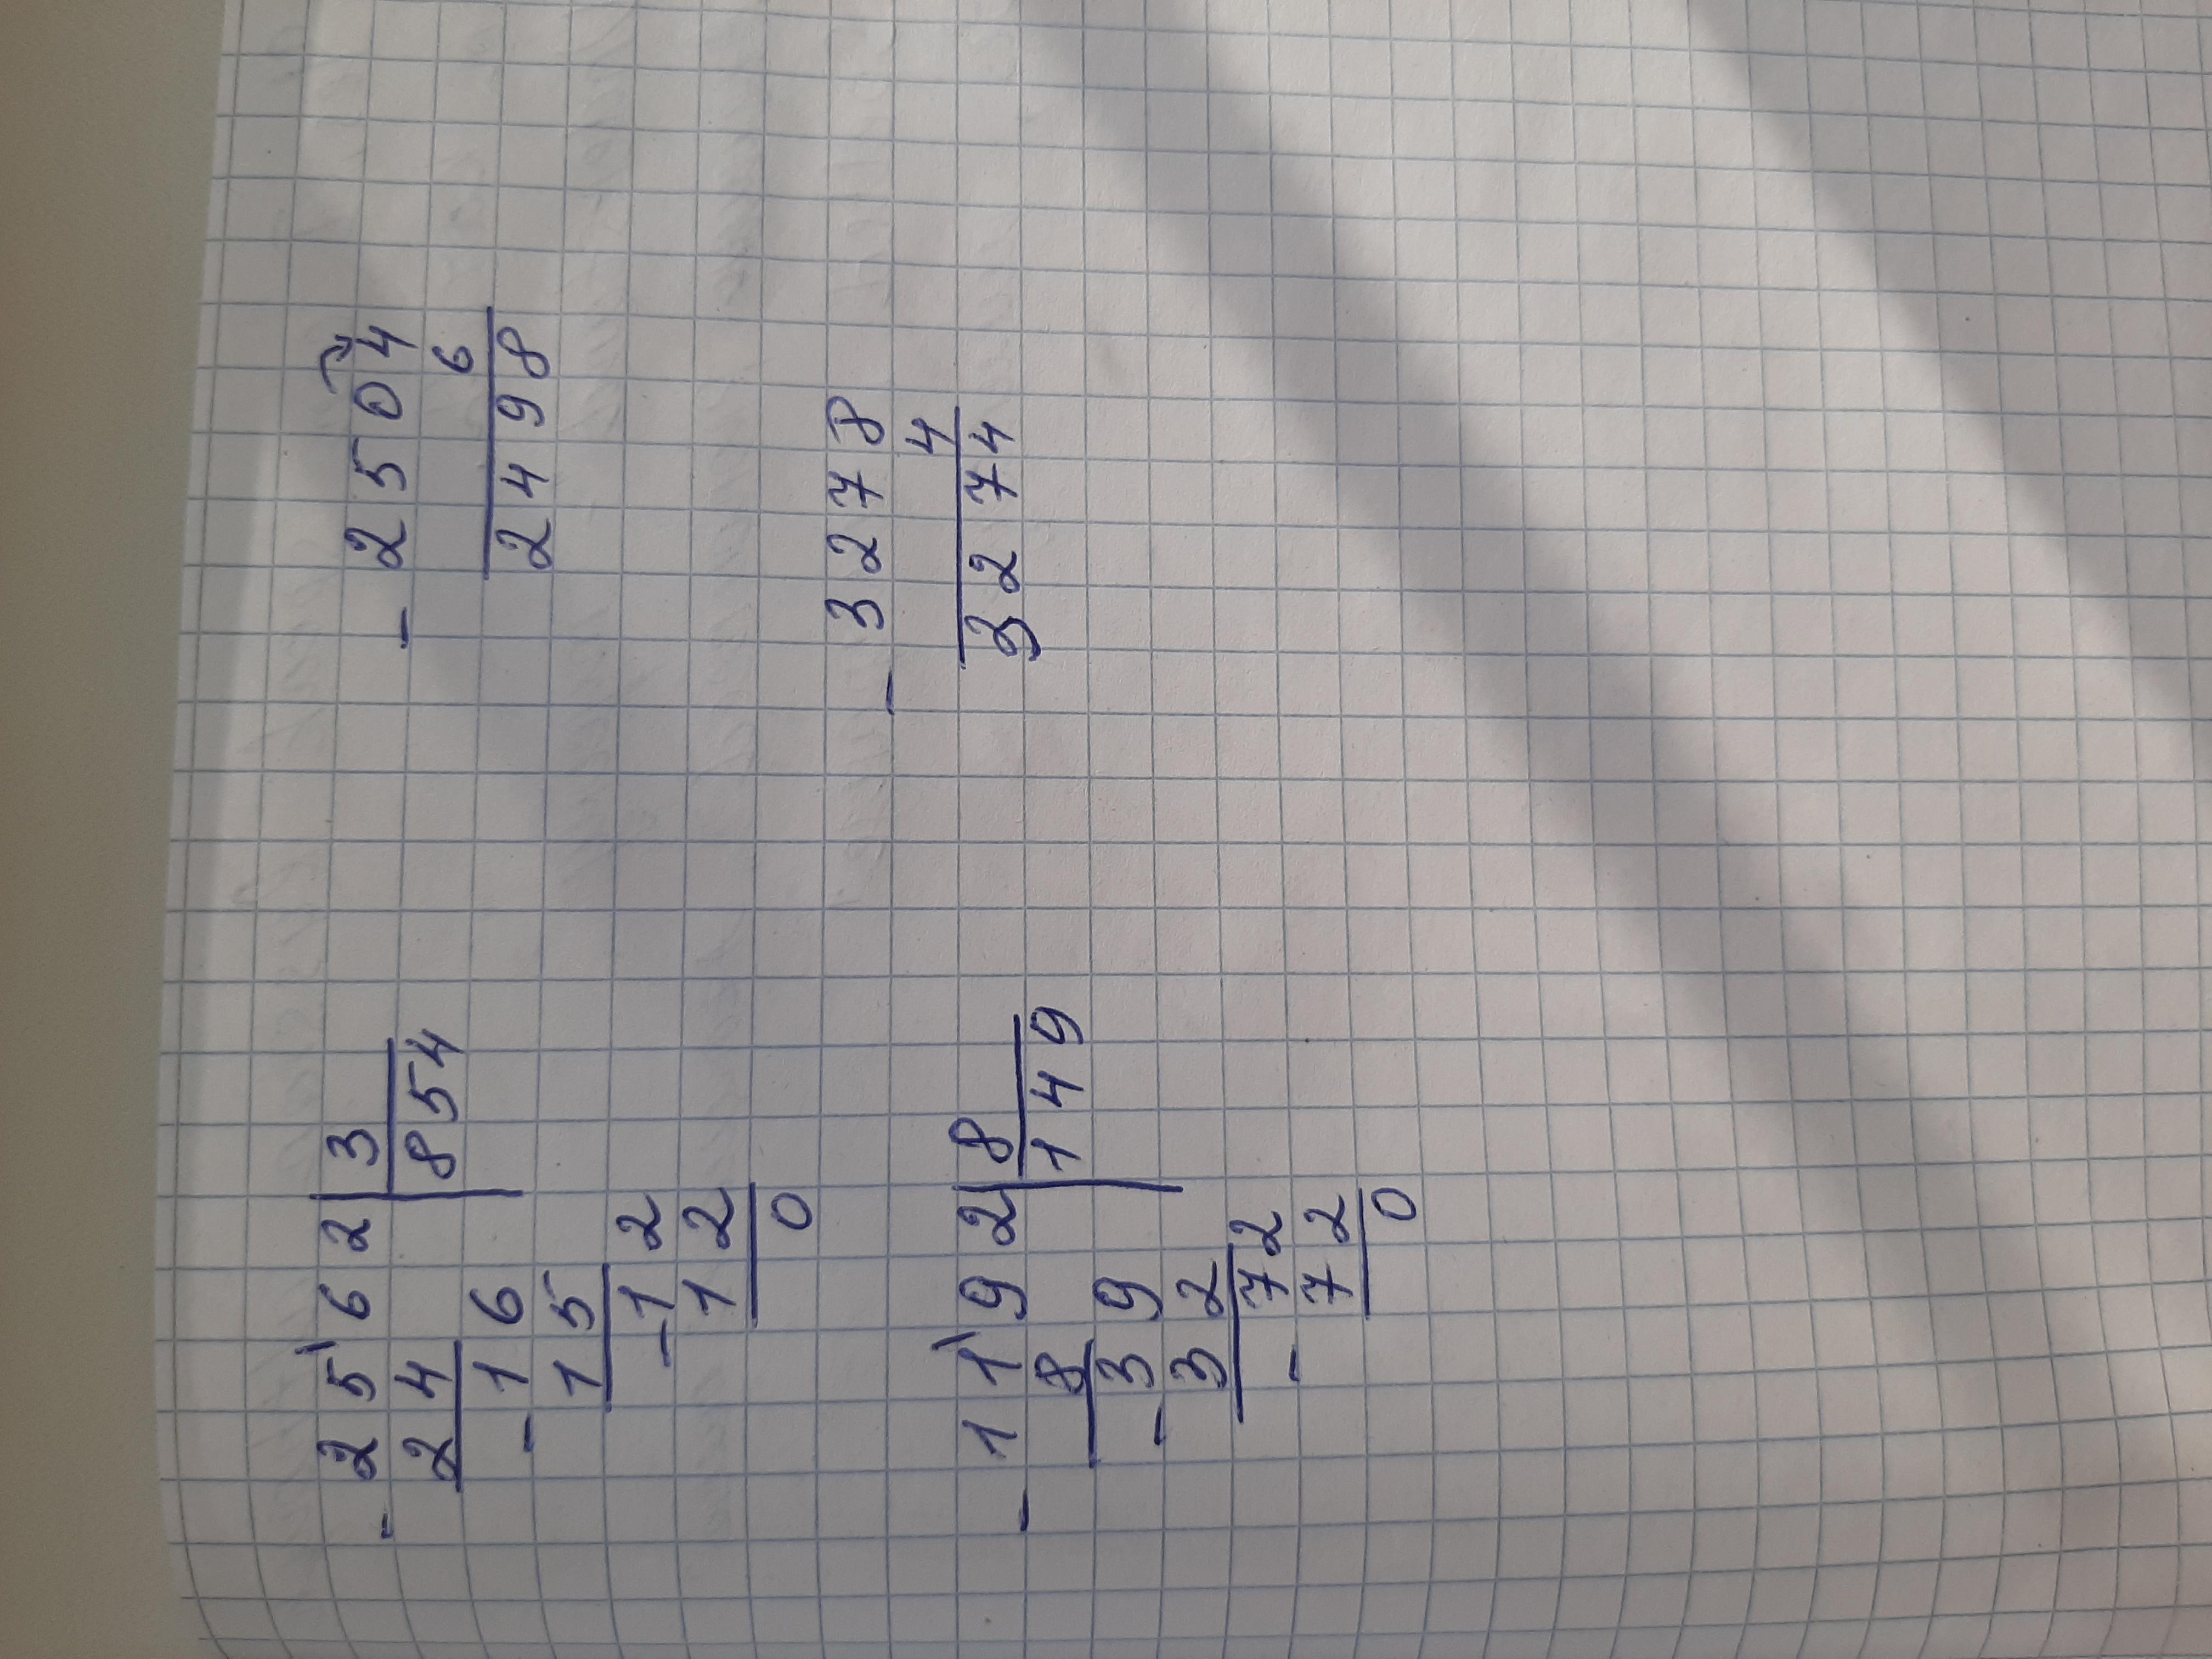 - 2562 | 3
24 | 854
- 16
15
- 12
12
0
- 2504
6
2498
- 1192 | 8
8 | 149
- 39
32
- 72
72
0
- 3278
4
3274